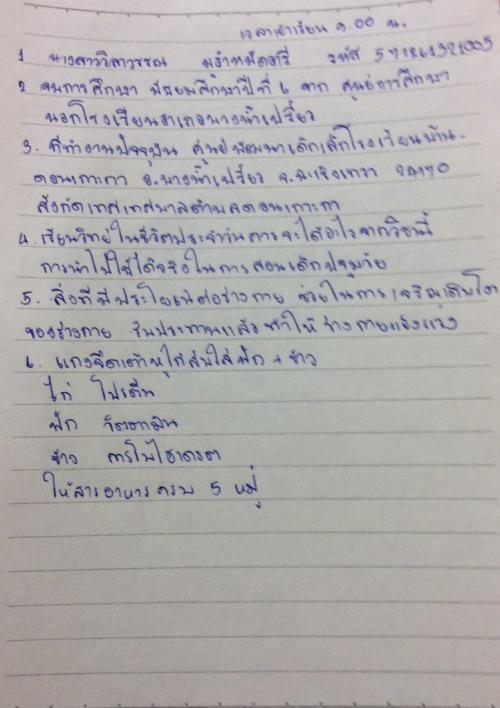 เวลาเข้าเรียน 9.00 น.
1 นางสาววิลาวรรณ รหัส
2 จบการศึกษา มัธยมศึกษาปีที่ 6 จาก ศูนย์การศึกษา
นอกโรงเรียนอำเภอบางน้ำเปรี้ยว
3. ที่ทำงานปัจจุบัน ศูนย์พัฒนาเด็กเล็กโรงเรียนบ้าน-
ดอนเกาะกา อ.บางน้ำเปรี้ยว จ.ฉะเชิงเทรา 24170
สังกัดเทศเทศบาลตำบลดอนเกาะกา
4. เรียนวิทย์ในชีวิตประจำวันควรจะได้อะไรจากวิชานี้
การนำไปใช้ได้จริงในการสอนเด็กปฐมวัย
5. สิ่งที่มีประโยชน์ต่อร่างกาย ช่วยในการเจริญเติบโต
ของร่างกาย รับประทานแล้วทำให้ร่างกายแข็งแรง
6. แกงจืดเต้าหู้ไก่สับใส่ฟัก + ข้าว
ไก่ โปรตีน
ฟัก วิตตามิน
ข้าว คาร์โบไฮเดรต
ให้สารอาหารครบ 5 หมู่